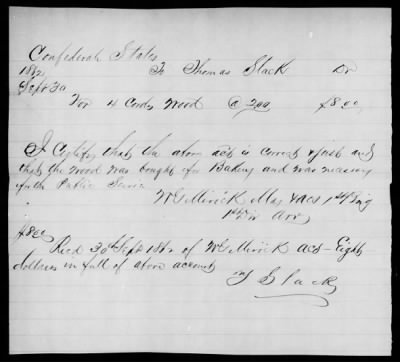 Confederate States
1862 To Thomas Slack Dr
Sept 30
For 4 Cords Wood @ 2.00 $8.00
I Certify that the above act is correct & just and
that the wood was bought for Baking and was necessary
for the Public Service
W G Mirick Maj & ACS 1st Brig
1st Div
$8.00
Recd 30th Sept 1862 of W G Mirick ACS - Eight
dollars in full of above account
T Slack